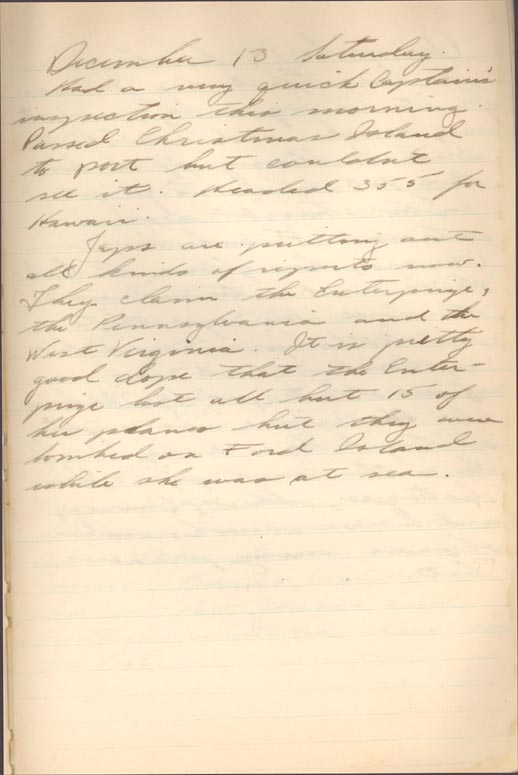 December 13 Saturday.
Had a very quick Captain's
inspection this morning.
Passed Christmas Island
to port but couldn't
see it. Headed 355 for
Hawaii.
Japs are putting out
all kinds of reports now.
They claim the Enterprize,
the Pennsylvania and the
West Virginia. It is pretty
good dope that the Enter-
prize lost all but 15 of
her planes but they were
bombed on Ford Island
while she was at sea.